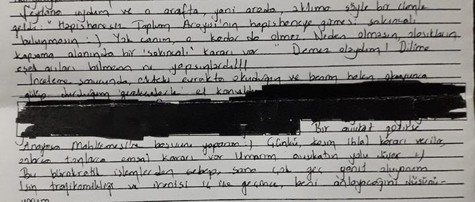 uydum ve o arafta, yani arada, aklıma şöyle bir cümle
geldi: "Hapishanecin Toplum Arayışı'nın hapishaneye girmesi sakıncalı
bulunmasın :) Yok canım o kadar da olmaz. Neden olmasın, olasılıkların
kapsama alanında bir "sakıncalı" kararı var. Demez olaydım! Dilime
eşek arıları bilmem ne yapsınlardı!!!
İnceleme sonucunda, ekteki evrakta okuduğun ve benim halen okuyunca
Bir avukat
Anayasa Mahkemesine başvuru yaparım :) Çünkü, kesin ihlal kararı verilir,
tonlarca emsal kararı var. Umarım avukatın yolu
Bu bürokratik işlemlerden sebep, sana çok geç yanıt oluyorum.
İşin trajikomikliği ve iç içe geçince, beni anlayacağını düşünü-
yorum.